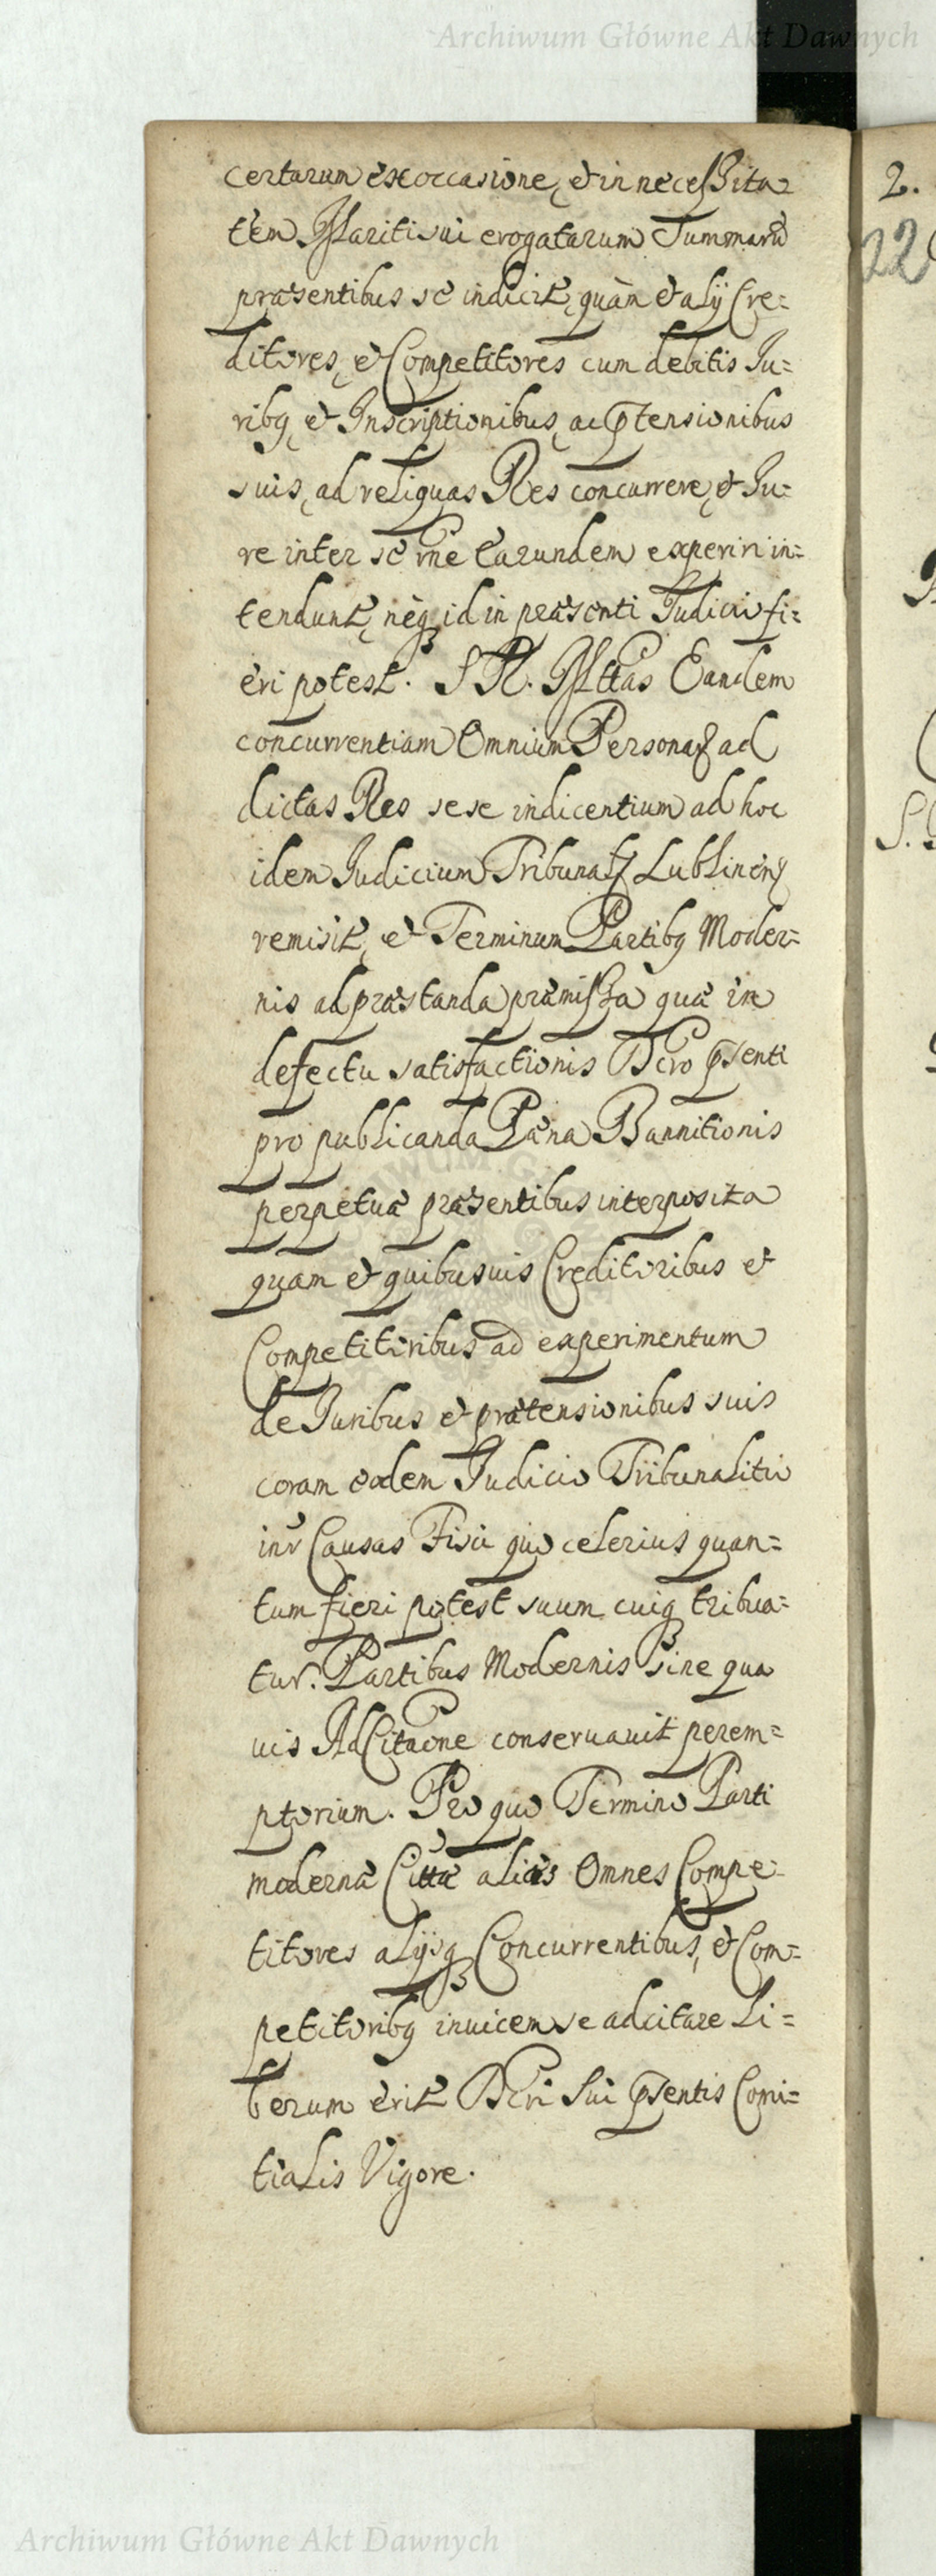 Archiwum Główne Akt Dawnych
certarum ex occasione, et in necessita
2.
tem Mariti sui erogatarum Summarū
22
præsentibus se indicit, quàm et alÿ Cre=
ditores, et Competitores cum debitis Ju=
ribq, et Inscriptionibus, ac ptensionibus
suis, ad reliquas Res concurrere, et Ju=
re inter se rne Earundem experiri in=
tendunt, neq id in præsenti Judicio fi=
eri potest. S R. Mttas Eandem
concurrentiam Omnium Personaꝝ ad
dictas Res sese indicentium ad hoc
idem Judicium Tribunal Lublinen
remisit, et Terminum Partibq Moder=
nis ad præstanda præmissa quà in
defectu satisfactionis Dcro psenti
pro publicanda Pæna Bannitionis
perpetuæ præsentibus interposita
quam et quibusuis Creditoribus et
Competitoribus ad experimentum
de Juribus et prætensionibus suis
coram eodem Judicio Tribunalitio
inr Causas Fisci quo celerius quan=
tum fieri potest suum cuiq tribua=
tur. Partibus Modernis sine qua
uis AdCitaone conseruauit perem=
ptorium. Pro quo Termino Parti
modernæ Cittæ alias Omnes Compe=
titores alÿsq Concurrentibus, et Com=
petitoribq inuicem se adcitare Li=
berum erit Dcri Sui psentis Comi=
tialis Vigore.
Archiwum Główne Akt Dawnych